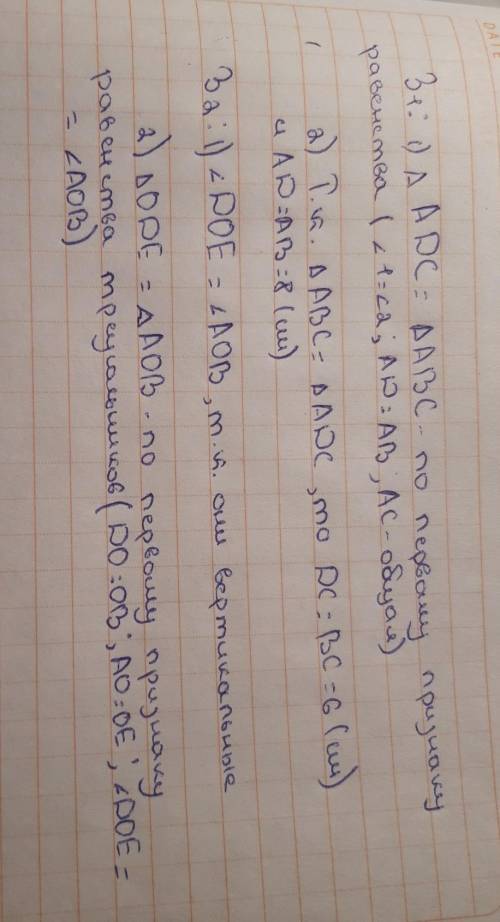 DATE
З1: 1) △ ADC = △ABC - по первому признаку
равенства ( ∠1=∠2; AD=AB; AC - общая)
2) Т.к. △ABC = △ADC, то DC = BC = 6 (см)
и AD=AB=8 (см)
З2: 1) ∠DOE = ∠AOB, т.к. они вертикальные
2) △ODE = △AOB - по первому признаку
равенства треугольников (DO=OB; AO=OE; ∠DOE =
= ∠AOB)